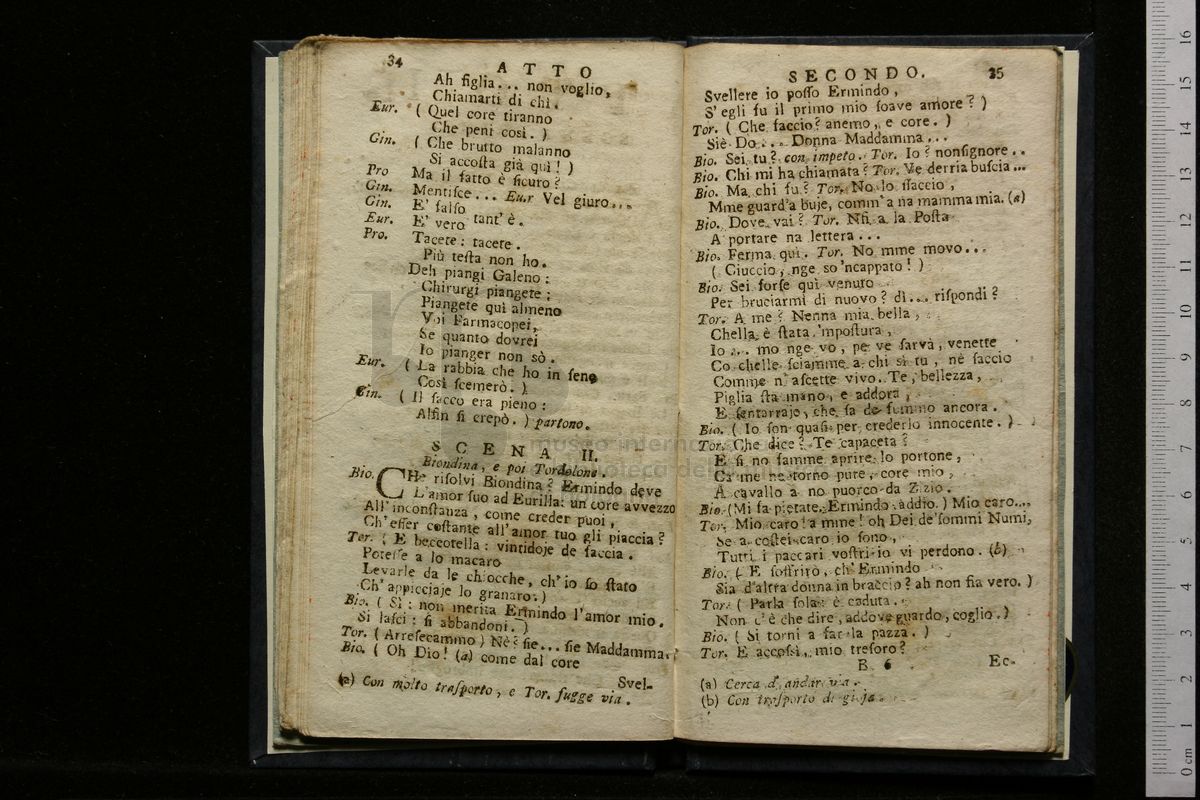 34
ATTO
Ah figlia... non voglio,
Chiamarti di chì.
Eur. ( Quel core tiranno
Che peni così. )
Gin. ( Che brutto malanno
Si accoſta già quì! )
Pro Ma il fatto è ſicuro?
Gin. Mentiſce... Eu.r Vel giuro...
Gin. E' falſo
Eur. E' vero tant' è.
Pro. Tacete: tacete.
Più teſta non ho.
Deh piangi Galeno:
Chirurgi piangete:
Piangete quì almeno
Voi Farmacopei,
Se quanto dovrei
Io pianger non sò.
Eur. ( La rabbia che ho in ſeno
Così ſcemerò. )
Gin. ( Il ſacco era pieno:
Alfin ſi crepò. ) partono.
SCENA II.
Biondina, e poi Tordolone.
Bio. CHe riſolvi Biondina? Ermindo deve
L'amor ſuo ad Eurilla: un core avvezzo
All' inconſtanza, come creder puoi,
Ch' eſſer coſtante all'amor tuo gli piaccia?
Tor. ( E beccotella: vintidoje de faccia.
Poteſſe a lo macaro
Levarle da le chiocche, ch' io ſo ſtato
Ch' appicciaje lo granaro.)
Bio. ( Sì: non merita Ermindo l'amor mio.
Si laſci: ſi abbandoni. )
Tor. ( Arreſecammo ) Nè? ſie... ſie Maddamma.
Bio. ( Oh Dio! (a) come dal core
Svel-
(a) Con molto traſporto, e Tor. fugge via.
SECONDO.
35
Svellere io poſſo Ermindo,
S' egli fu il primo mio ſoave amore? )
Tor. ( Che faccio? anemo, e core. )
Siè Do... Donna Maddamma...
Bio. Sei tu? con impeto. Tor. Io? nonſignore..
Bio. Chi mi ha chiamata? Tor. Ve derria buſcia...
Bio. Ma chi fu? Tor. No lo ſſaccio,
Mme guard'a buje, comm' a na mamma mia. (a)
Bio. Dove vai? Tor. Nfi a la Poſta
A portare na lettera...
Bio. Ferma quì. Tor. No mme movo...
( Ciuccio, nge so 'ncappato! )
Bio. Sei forſe quì venuto
Per bruciarmi di nuovo? dì... riſpondi?
Tor. A me? Nenna mia bella,
Chella è ſtata 'mpoſtura,
Io... mo nge vo, pe ve ſarvà, venette
Co chelle ſciamme a chi sì tu, nè ſaccio
Comme n' aſcette vivo. Te, bellezza,
Piglia ſta mano, e addora,
E ſentarraje, che ſa de fummo ancora.
Bio. ( Io ſon quaſi per crederlo innocente. )
Tor. Che dice? Te capaceta?
E ſi no famme aprire lo portone,
Ca me ne torno pure, core mio,
A cavallo a no puorco da Zizio.
Bio. (Mi fa pietate. Ermindo addio.) Mio caro...
Tor. Mio caro! a mme! oh Dei de' ſommi Numi,
Se a coſtei caro io ſono,
Tutti i paccari voſtri io vi perdono. (b)
Bio. ( E ſoffrirò, ch' Ermindo
Sia d'altra donna in braccio? ah non fia vero. )
Tor. ( Parla ſola: è caduta.
Non c' è che dire, addove guardo, coglio.)
Bio. ( Si torni a far la pazza. )
Tor. E accoſsì, mio treſoro?
B 6
Ec-
(a) Cerca d' andar via.
(b) Con traſporto di gioja.